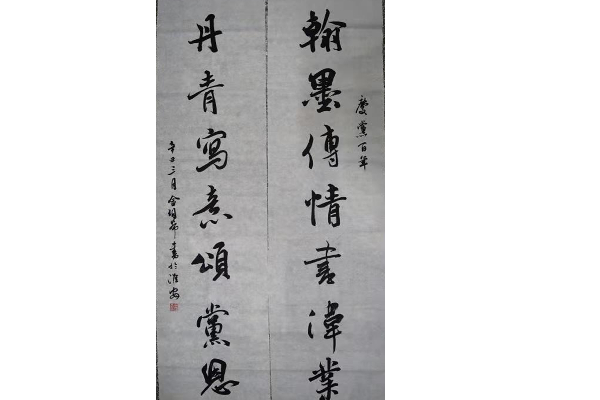 慶黨百年
翰墨傳情書偉業
丹青寫意頌黨恩
辛丑三月金
書於淮安